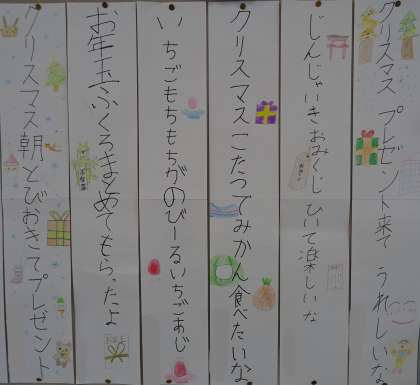 クリスマス プレゼント来て うれしいな
じんじゃいき おみくじ ひいて 楽しいな
クリスマス こたつでみかん 食べたいな
いちごもち もちがのびーる いちごあじ
お年玉 ふくろまとめて もらったよ
クリスマス 朝とびおきて プレゼント